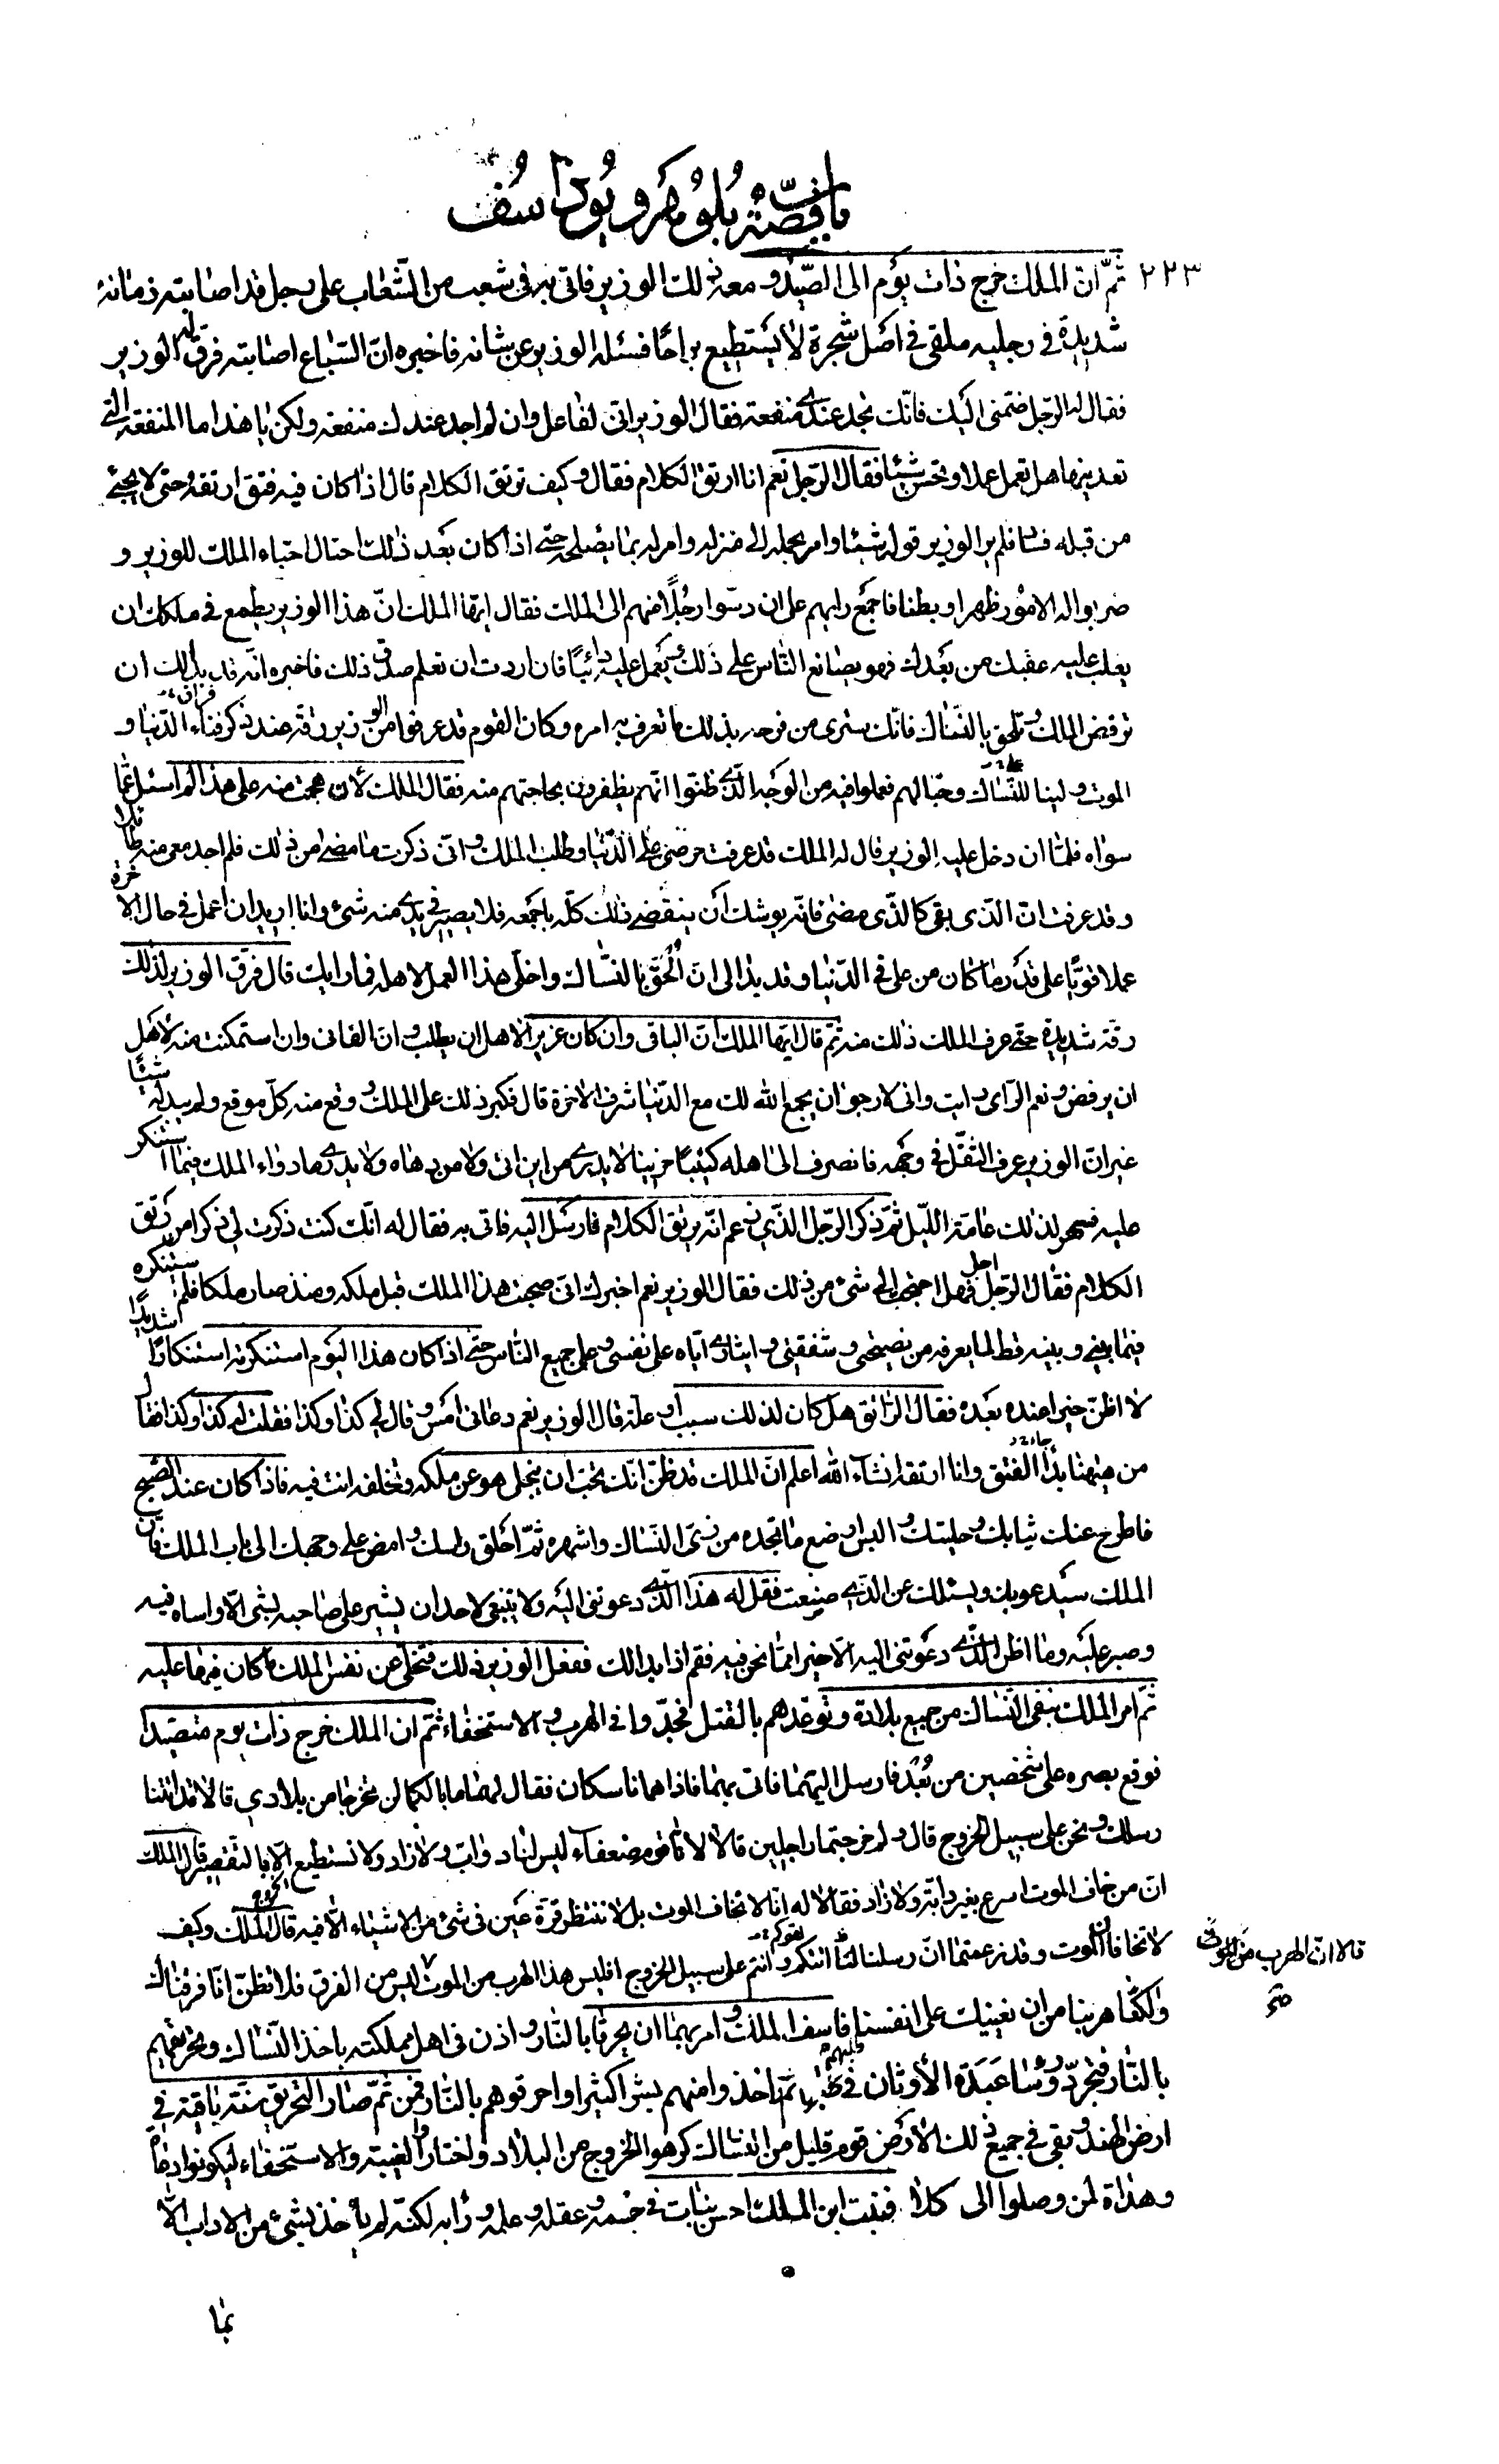 باقی قصّة بُلُوهَر و يُوذاسُف
٢٢٣ ثمّ ان الملك خرج ذات يوم الى الصّيد و معه ذلك الوزير فاتى به فى شعب من الشّعاب على رجل قد اصابته زمانة
شديدة فى رجليه ملقى فى اصل شجرة لا يستطيع براحًا فسئله الوزير عن شانه فاخبره انّ السّباع اصابته فرقّ له الوزير
فقال له الرّجل ضمّنى اليك فانّك تجد عندى منفعة فقال الوزير انّى لفاعل وان لم اجد عندك منفعة ولكن يا هذا ما المنفعة التى
تعدينها هل تعمل عملا او تحسن شيئا فقال الرّجل نعم انا ارتق الكلام فقال و كيف ترتق الكلام قال اذا كان فيه فتق ارتقه حتى لا يجئ
من قبله فساد فلم ير الوزير قوله شيئا وامر بحمله الى منزله وامر له بما يصلحه حتى اذا كان بعد ذلك احتال احبّاء الملك للوزير و
ضربوا له الامور ظهرا و بطنا فاجمع رايهم على ان دسّوا رجلًا منهم الى الملك فقال ايّها الملك انّ هذا الوزير يطمع فى ملكك ان
يغلب عليه عقبك من بعدك فهو يصانع النّاس على ذلك و يعمل عليه دائبًا فان اردت ان تعلم صدق ذلك فاخبره انّه قد بدا لك ان
ترفض الملك و تلحق بالنّسّاك فانّك سترى من فرحه بذلك ما تعرف به امره و كان القوم قد عرفوا من الوزير رقّة عند ذكر فناء فراق الدّنيا و
الموت و لينا للنّسّاك و حبّا لهم فعملوا فيه من الوجه الّذى ظنّوا انّهم يظفرون بحاجتهم منه فقال الملك لئن هجمت منه على هذا لم اسئل عمّا
سواه فلمّا ان دخل عليه الوزير قال له الملك قد عرفت حرصى على الدّنيا و طلب الملك و انّى ذكرت ما مضى من ذلك فلم اجد معى منه طائلا
و قد عرفت انّ الّذى بقى كالّذى مضى فانّه يوشك ان ينقضى ذلك كلّه باجمعه فلا يصير فى يدى منه شئ وانا اريد ان اعمل فى حال الاخرة
عملا قويًّا على قدر ما كان من على فى الدّنيا و قد بدا لى ان اُلْحَق بالنّسّاك و اخلّى هذا العمل لاهله فما رايك قال فرقّ الوزير لذلك
رقّة شديدة حتى عرف الملك ذلك منه ثمّ قال ايّها الملك انّ الباقى وان كان عزيزا لاهل ان يطلب و انّ الفانى وان استمكنت منه لاهل
ان يرفض و نعم الرّاى رايت وانى لارجو ان يجمع الله لك مع الدّنيا شرف الاخرة قال فكبر ذلك على الملك و وقع منه كلّ موقع و لم يبد له شيئًا
غير انّ الوزير عرف الثّقل فى وجهه فانصرف الى اهله كئيبًا حزينا لا يدرى من اين اتى ولا من دهاه ولا يدرى ما دواء الملك فيما استنكر
عليه فسهر لذلك عامّة اللّيل ثمّ ذكر الرّجل الّذى زعم انّه يرتق الكلام فارسل اليه فاتى به فقال له انّك كنت ذكرت لى ذكرا من رتق
الكلام فقال الرّجل اجل فهل احتجت الى شئ من ذلك فقال الوزير نعم اخبرك انّى صحبت هذا الملك قبل ملكه و منذ صار ملكا فلم استنكره
فيما بينى و بينه قط لما يعرفه من نصيحتى و شفقتى و ايثارى ايّاه على نفسى و على جميع النّاس حتى اذا كان هذا اليوم استنكرته استنكارًا شديدًا
لا اظنّ خيرا عنده بعده فقال الرّاتق هل كان لذلك سبب او علّة قال الوزير نعم دعانى امس و قال لى كذا و كذا فقلت له كذا و كذا فقال
من هيهنا جاء بدا الفتق وانا ارتقه انشآء الله اعلم انّ الملك قد ظنّ انّك تحبّ ان يتخلى هو عن ملكه و تخلفه انت فيه فاذا كان عند الصّبح
فاطرح عنك ثيابك و حليتك و البس اوضع ما تجده من زىّ النّسّاك و اشهره ثمّ احلق راسك و امض على وجهك الى باب الملك فانّ
الملك سيدعو بك و يسئلك عن الّذى صنعت فقل له هذا الّذى دعوتنى اليه ولا ينبغى لاحد ان يشير على صاحبه بشئ الّا واساه فيه
و صبر عليه و ما اظنّ الّذى دعوتنى اليه الّا خيرا ممّا نحن فيه فقم اذا بدا لك ففعل الوزير ذلك فتخلّى عن نفس الملك ما كان فيها عليه
ثمّ امر الملك بنفى النّسّاك من جميع بلاده و توعّدهم بالقتل فجدّوا فى الهرب و الاستخفاء ثمّ ان الملك خرج ذات يوم متصيّدا
فوقع بصره على شخصين من بُعْد فارسل اليهما فاتى بهما فاذا هما ناسكان فقال لهما ما بالكما لن تخرجا من بلادى قالا قد اتتنا
رسلك و نحن على سبيل الخروج قال و لم خرجتما راجلين قالا لانّا قوم ضعفآء ليس لنا دوابّ ولا زاد ولا نستطيع الخروج الّا بالتّقصير قال الملك
انّ من خاف الموت اسرع بغير دابّة ولا زاد فقالا له انّا لا نخاف الموت بل لا ننتظر قرّة عين فى شئ من الاشياء الّا فيه قال الملك و كيف
لا تخافان الموت و قد زعمتما انّ رسلنا لمّا اتتكم و انتم على سبيل الخروج افليس هذا الهرب من الموت ليس من الفرق فلا تظنّ انّا فرقناك
قالا انّ الهرب من الموت
صح
ولكنّا هربنا من ان نعينك على انفسنا فاسف الملك و امر بهما ان يحرقا بالنّار و اذن فى اهل مملكته باخذ النّسّاك و تحريقهم
بالنّار فتجرّد رؤسا عَبَدَة الأوثان فى طلبهم ثمّ اخذوا منهم بشرا كثيرا و احرقوهم بالنّار فمن ثمّ صار التحريق سنّة باقية فى
ارض الهند و بقى فى جميع ذلك الأرض قوم قليل من النّسّاك كرهوا الخروج من البلاد و اختاروا الغيبة و الاستخفاء ليكونوا دعاة
و هداة لمن وصلوا الى كلام فنبت ابن الملك احسن نبات فى جسمه و عقله و علمه و رأيه لكنّه لم يأخذ بشئ من الاداب الّا
بما